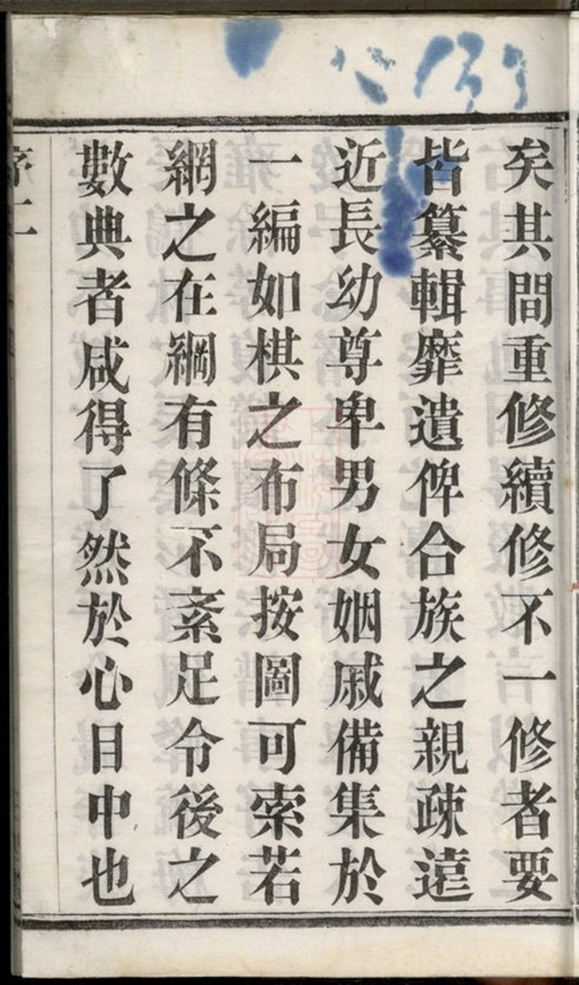 矣其間重修續修不一修者要
皆纂輯靡遺俾合族之親疎遠
近長幼尊卑男女姻戚備集於
一編如棋之布局按圖可索若
網之在綱有條不紊足令後之
數典者咸得了然於心目中也
序二